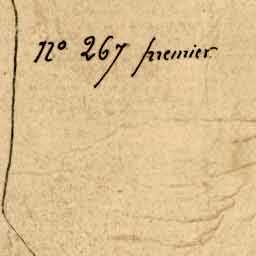 Nº 267 premier